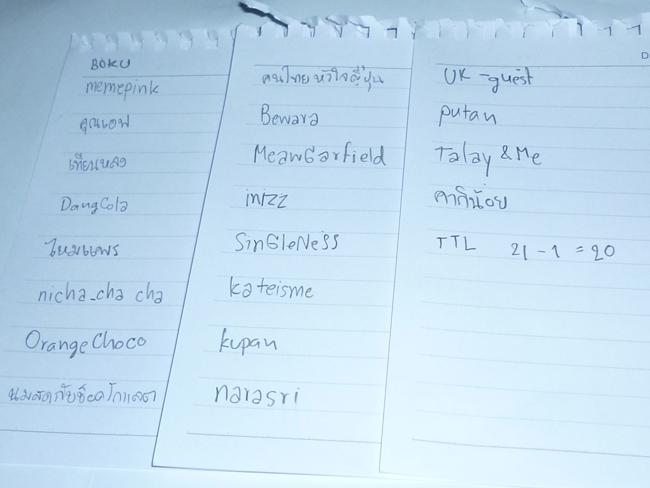 BOKU
memepink
คุณเอฟ
เทียนหลง
DangCola
ไหมแพร
nicha_cha cha
OrangeChoco
นมสดกับช็อคโกแลตา
คนไทยหัวใจญี่ปุ่น
Bewara
MeawGarfield
intzz
SinGleNeSS
kateisme
kupan
narasri
UK-guest
putan
Talay & Me
คากิน้อย
TTL 21 - 1 = 20